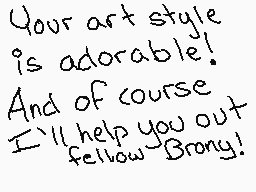 Your art style
is adorable!
And of course
I'll help you out
fellow Brony!